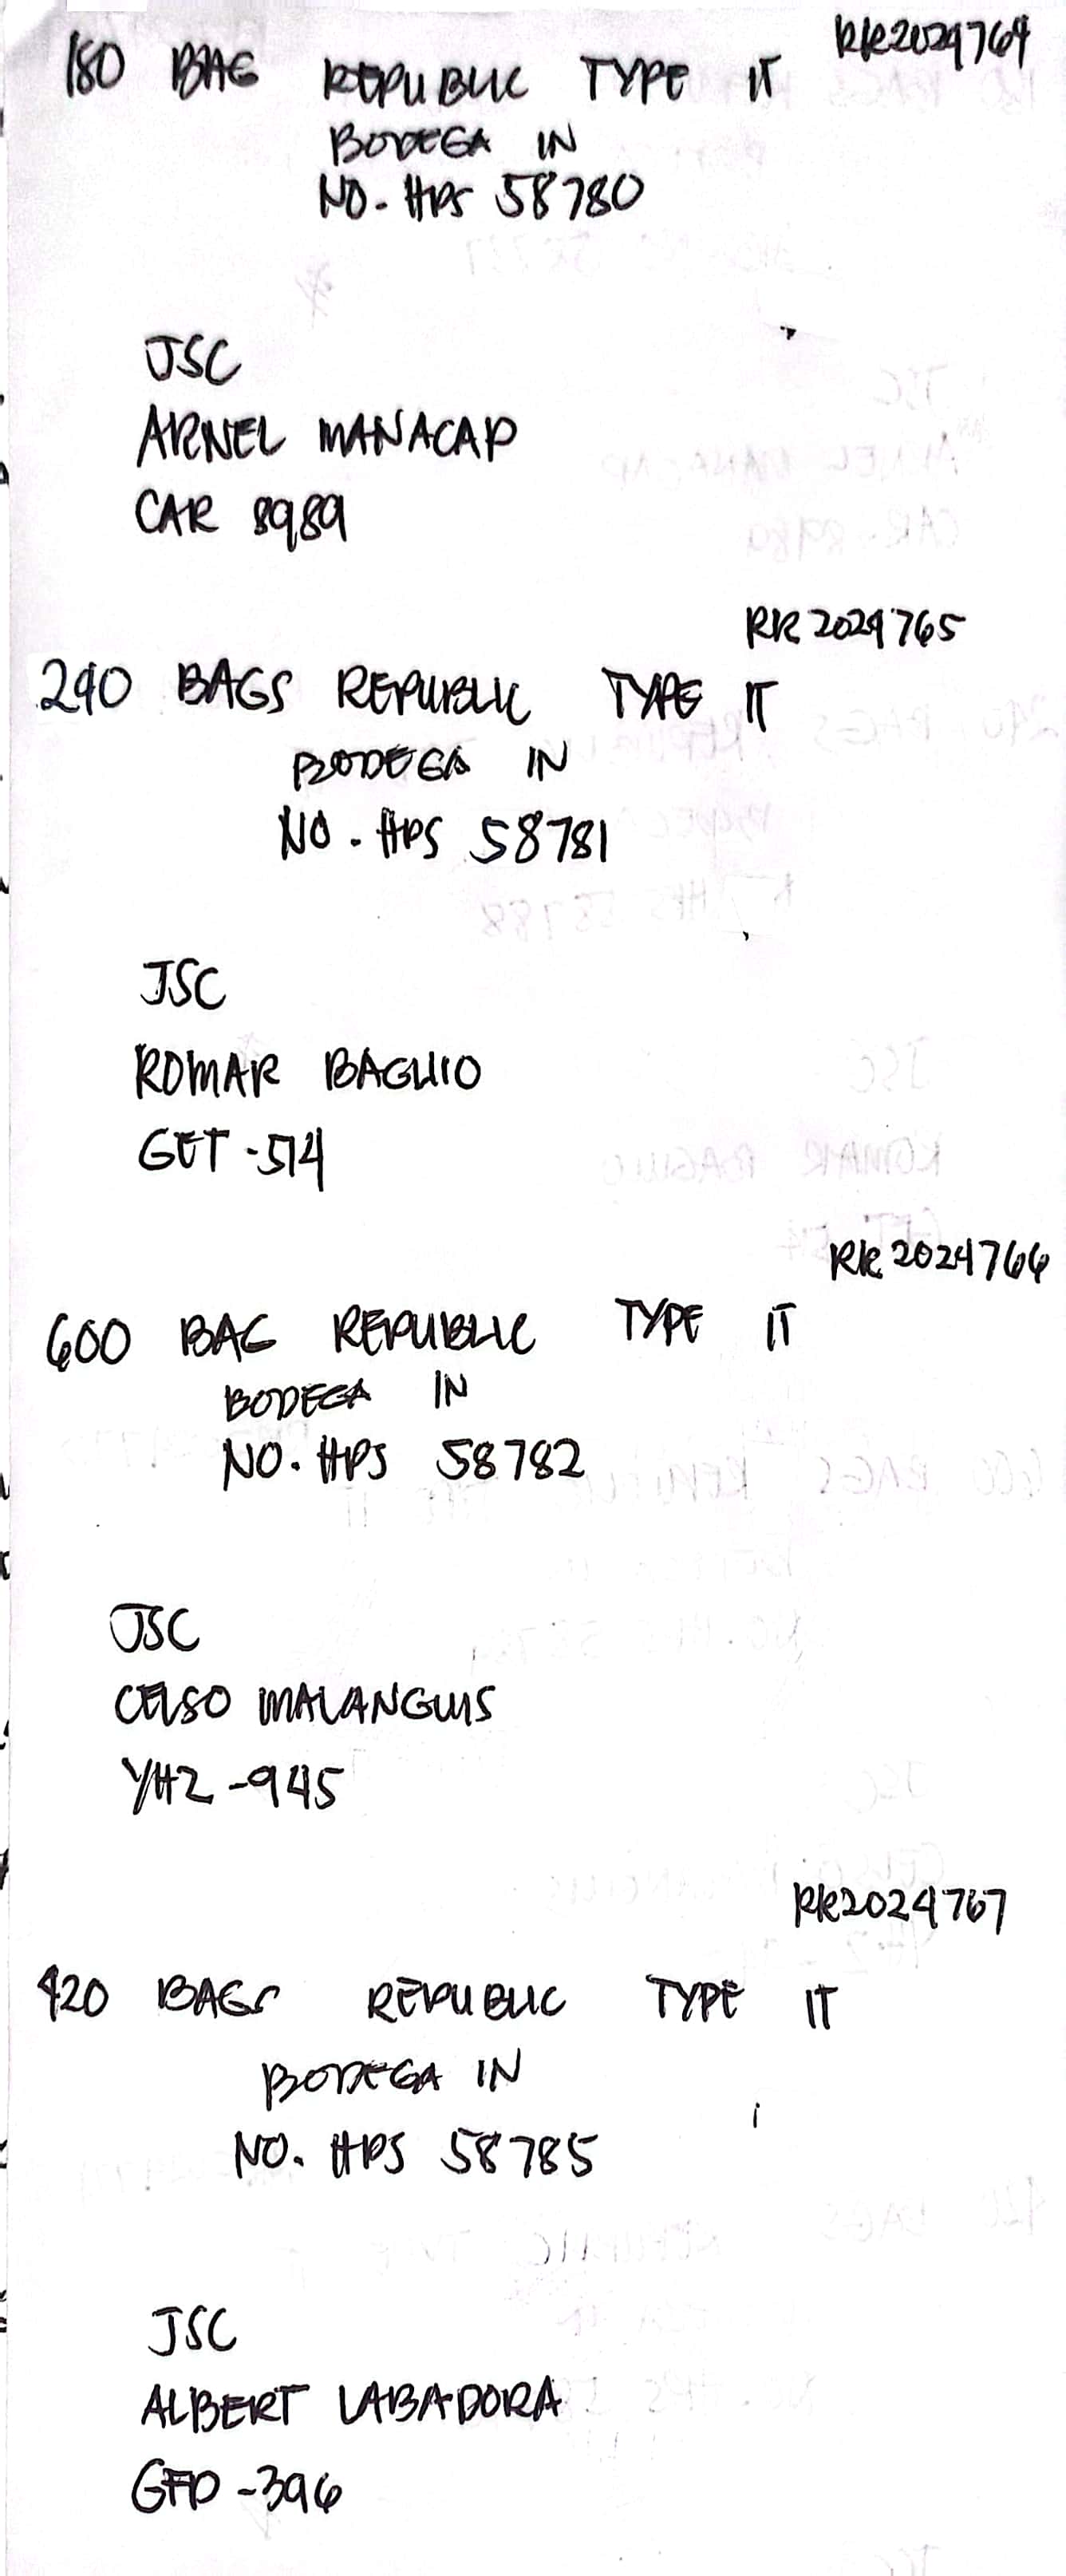 RR2024764
180 BAG REPUBLIC TYPE IT
BODEGA IN
NO. HPS 58780
JSC
ARNEL MANACAP
CAR 8989
RR 2024765
240 BAGS REPUBLIC TYPE IT
BODEGA IN
NO. HPS 58781
JSC
ROMAR BAGUIO
GET-514
RR 2024766
600 BAG REPUBLIC TYPE IT
BODEGA IN
NO. HPS 58782
JSC
CELSO MALANGUIS
YHZ-945
RR2024767
420 BAGS REPUBLIC TYPE IT
BODEGA IN
NO. HPS 58785
JSC
ALBERT LABADORA
GFD-396